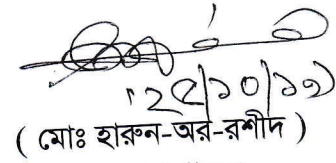 ২৫/১০/১৭
( মোঃ হারুন-অর-রশীদ )